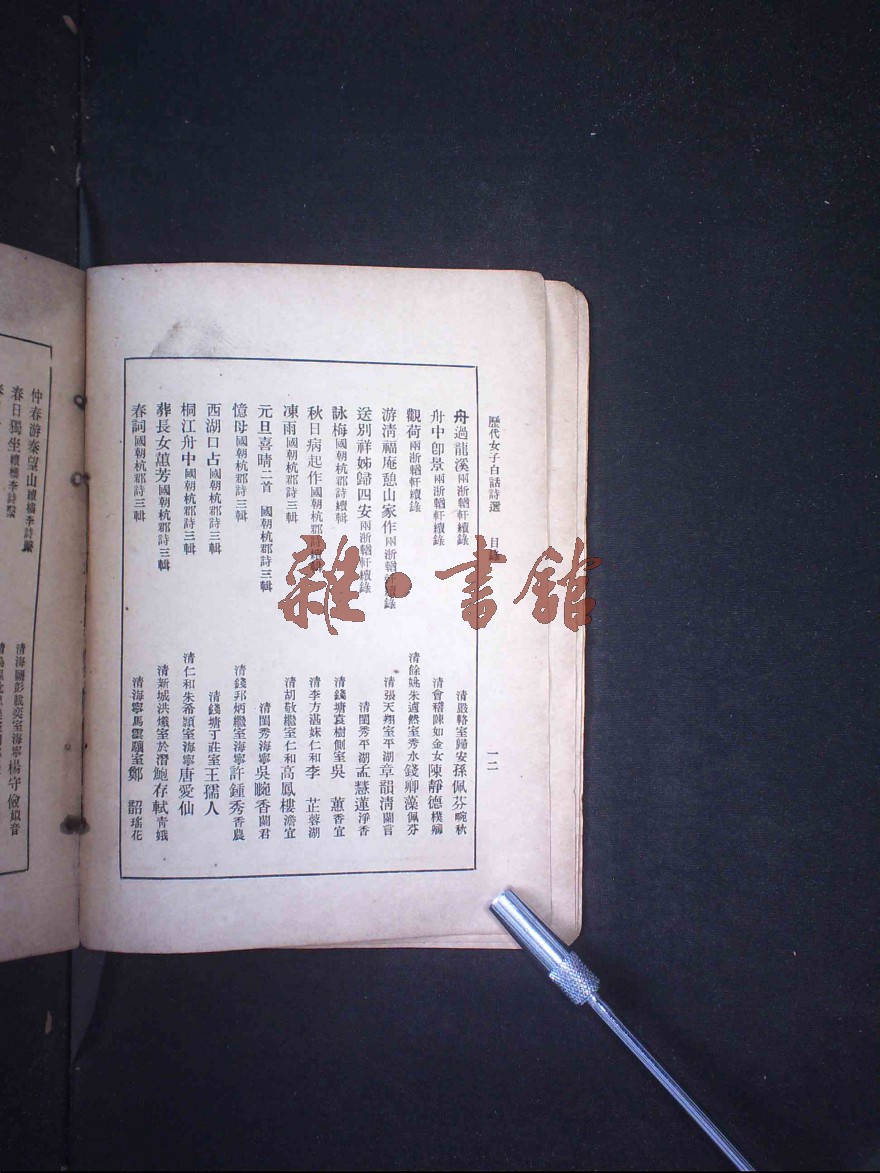 歷代女子白話詩選　目錄　一二
舟過龍溪兩浙輶軒續錄　清嚴輅室歸安孫佩芬畹秋
舟中卽景兩浙輶軒續錄　清會稽陳如金女陳靜德樸
觀荷兩浙輶軒續錄　清餘姚朱適然室秀水錢卿藻佩芬
游清福庵憩山家作兩浙輶軒續錄　清張天翔室平湖章韻清蘭言
送別祥姊歸四安兩浙輶軒續錄　清閨秀平湖孟慧蓮淨香
詠梅國朝杭郡詩續輯　清錢塘袁樹側室吳　蕙香宜
秋日病起作國朝杭郡詩續輯　清李方湛妹仁和李　芷蓉湖
凍雨國朝杭郡詩三輯　清胡敬繼室仁和高鳳樓澹宜
元旦喜晴二首　國朝杭郡詩三輯　清閨秀海寧吳畹香蘭君
憶母國朝杭郡詩三輯　清錢邦炳繼室海寧許鍾秀香農
西湖口占國朝杭郡詩三輯　清錢塘丁莊室王孺人
桐江舟中國朝杭郡詩三輯　清仁和朱希潁室海寧唐愛仙
葬長女蕙芳國朝杭郡詩三輯　清新城洪爔室於潛鮑存軾青娥
春詞國朝杭郡詩三輯　清海寧馬雲驤室鄭　韶瑤花
仲春游秦望山續檇李詩繫　清海鹽彭載奕室海寧楊守儉
春日獨坐續檇李詩繫
雜·書館